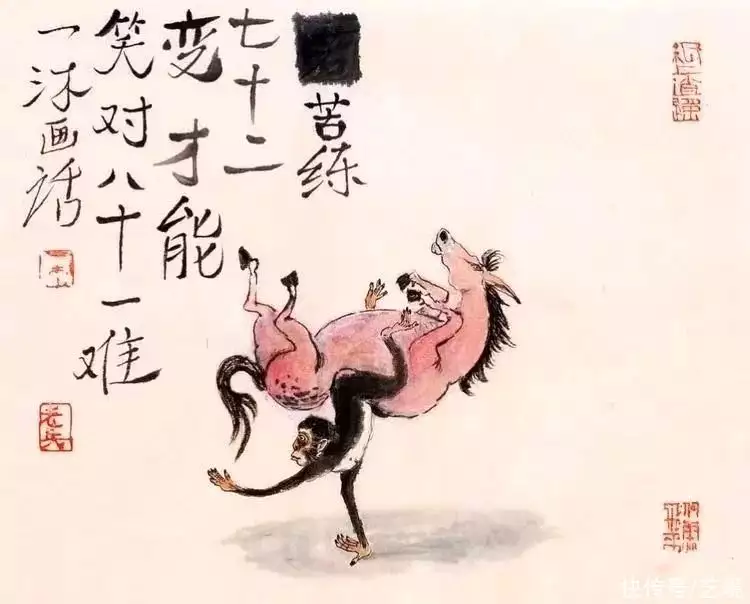 苦练
七十二
变才能
笑对八十一难
一沐画话
快传号